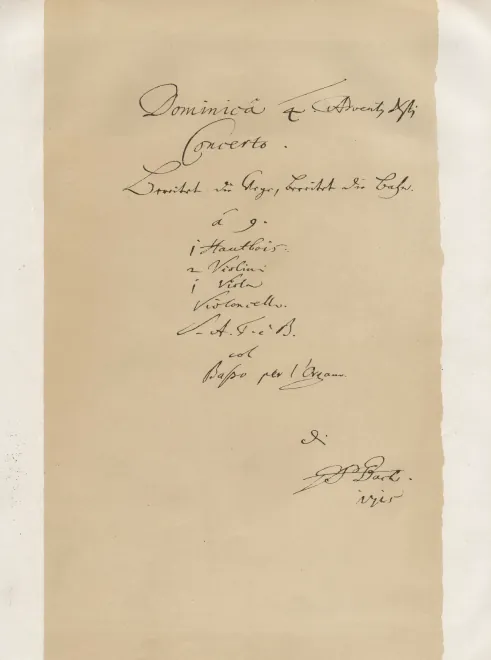 Dominicâ 4 Advent, Xsti
Concerto.
Bereitet die Wege, bereitet die Bahn.
â 9.
1 Hautbois.
2 Violini
1 Viola
Violoncello.
S. A. T. è B.
col
Basso per l'Organo.
di
JSBach.
1715